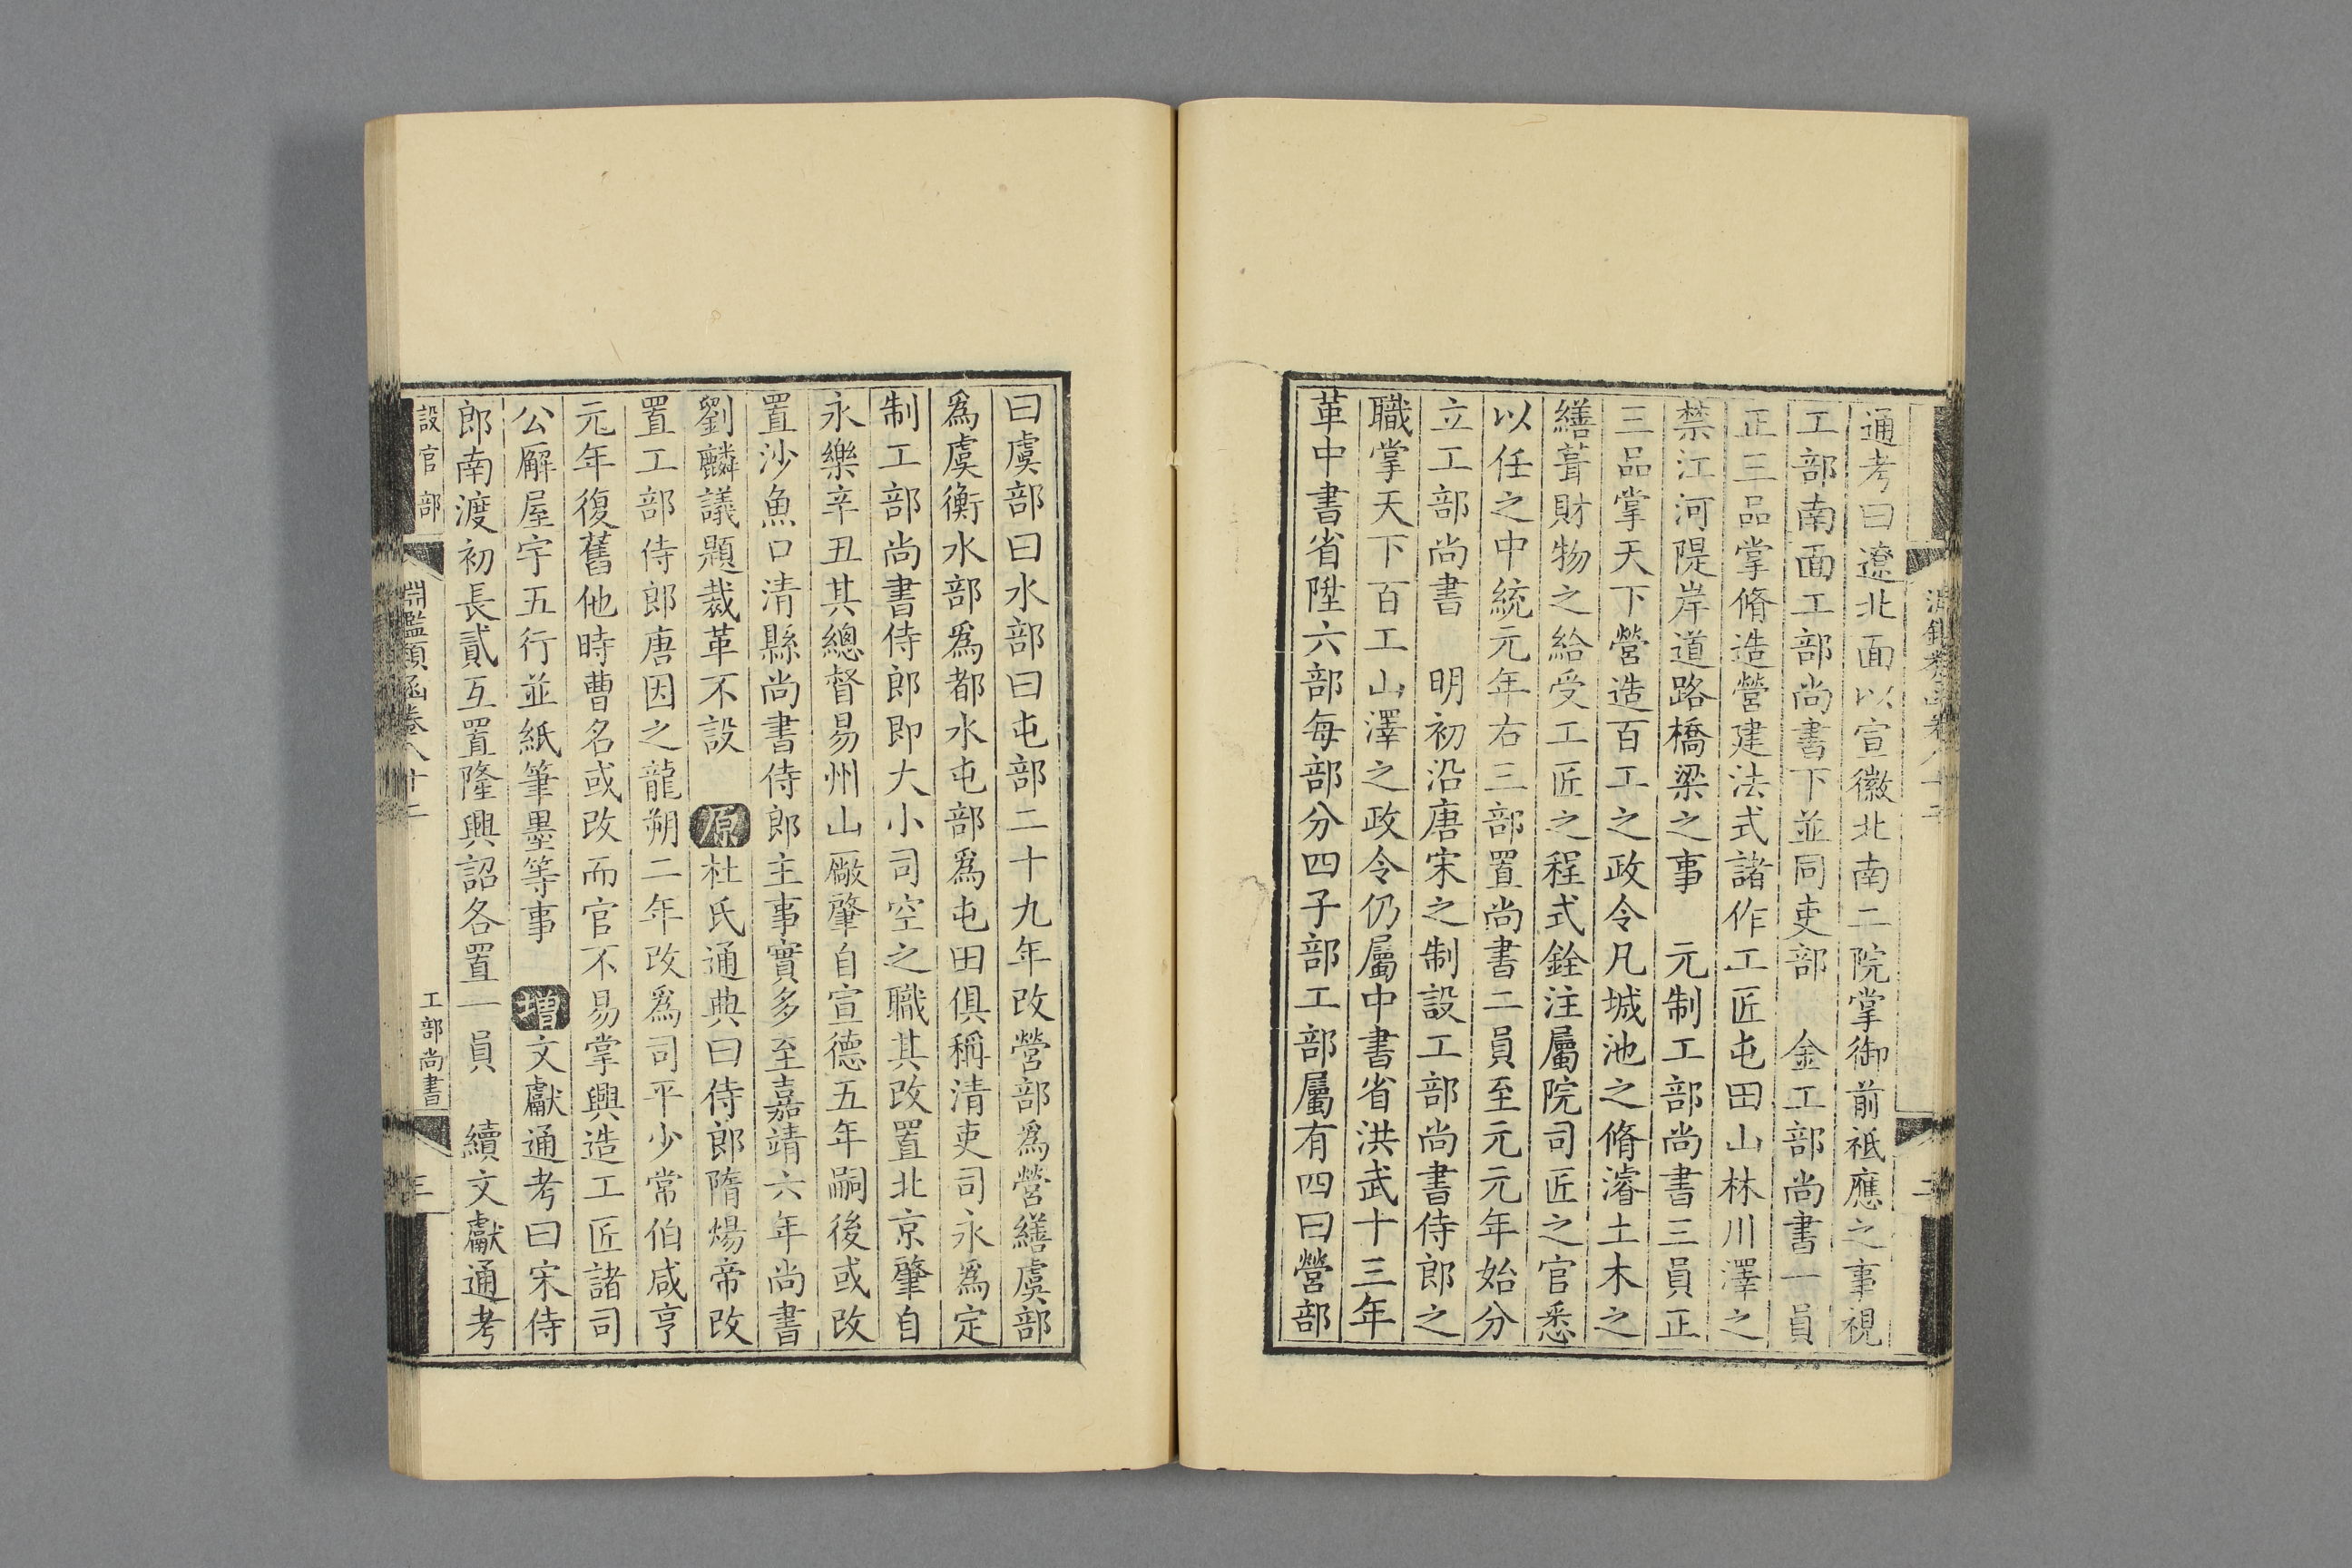 通考曰遼北面以宣徽北南二院掌御前祗應之事視
工部南面工部尚書下並同吏部　金工部尚書一員
正三品掌脩造營建法式諸作工匠屯田山林川澤之
禁江河隄岸道路橋梁之事　元制工部尚書三員正
三品掌天下營造百工之政令凡城池之脩濬土木之
繕葺財物之給受工匠之程式銓注屬院司匠之官悉
以任之中統元年右三部置尚書二員至元元年始分
立工部尚書　明初沿唐宋之制設工部尚書侍郎之
職掌天下百工山澤之政令仍屬中書省洪武十三年
革中書省陞六部每部分四子部工部屬有四曰營部
曰虞部曰水部曰屯部二十九年改營部爲營繕虞部
爲虞衡水部爲都水屯部爲屯田俱稱清吏司永爲定
制工部尚書侍郎即大小司空之職其改置北京肇自
永樂辛丑其總督易州山廠肇自宣德五年嗣後或改
置沙魚口清縣尚書侍郎主事實多至嘉靖六年尚書
劉麟議題裁革不設　原杜氏通典曰侍郎隋煬帝改
置工部侍郎唐因之龍朔二年改爲司平少常伯咸亨
元年復舊他時曹名或改而官不易掌興造工匠諸司
公廨屋宇五行並紙筆墨等事　增文獻通考曰宋侍
郎南渡初長貳互置隆興詔各置一員　續文獻通考
設官部
淵鑑類函卷八十二
工部尚書
三